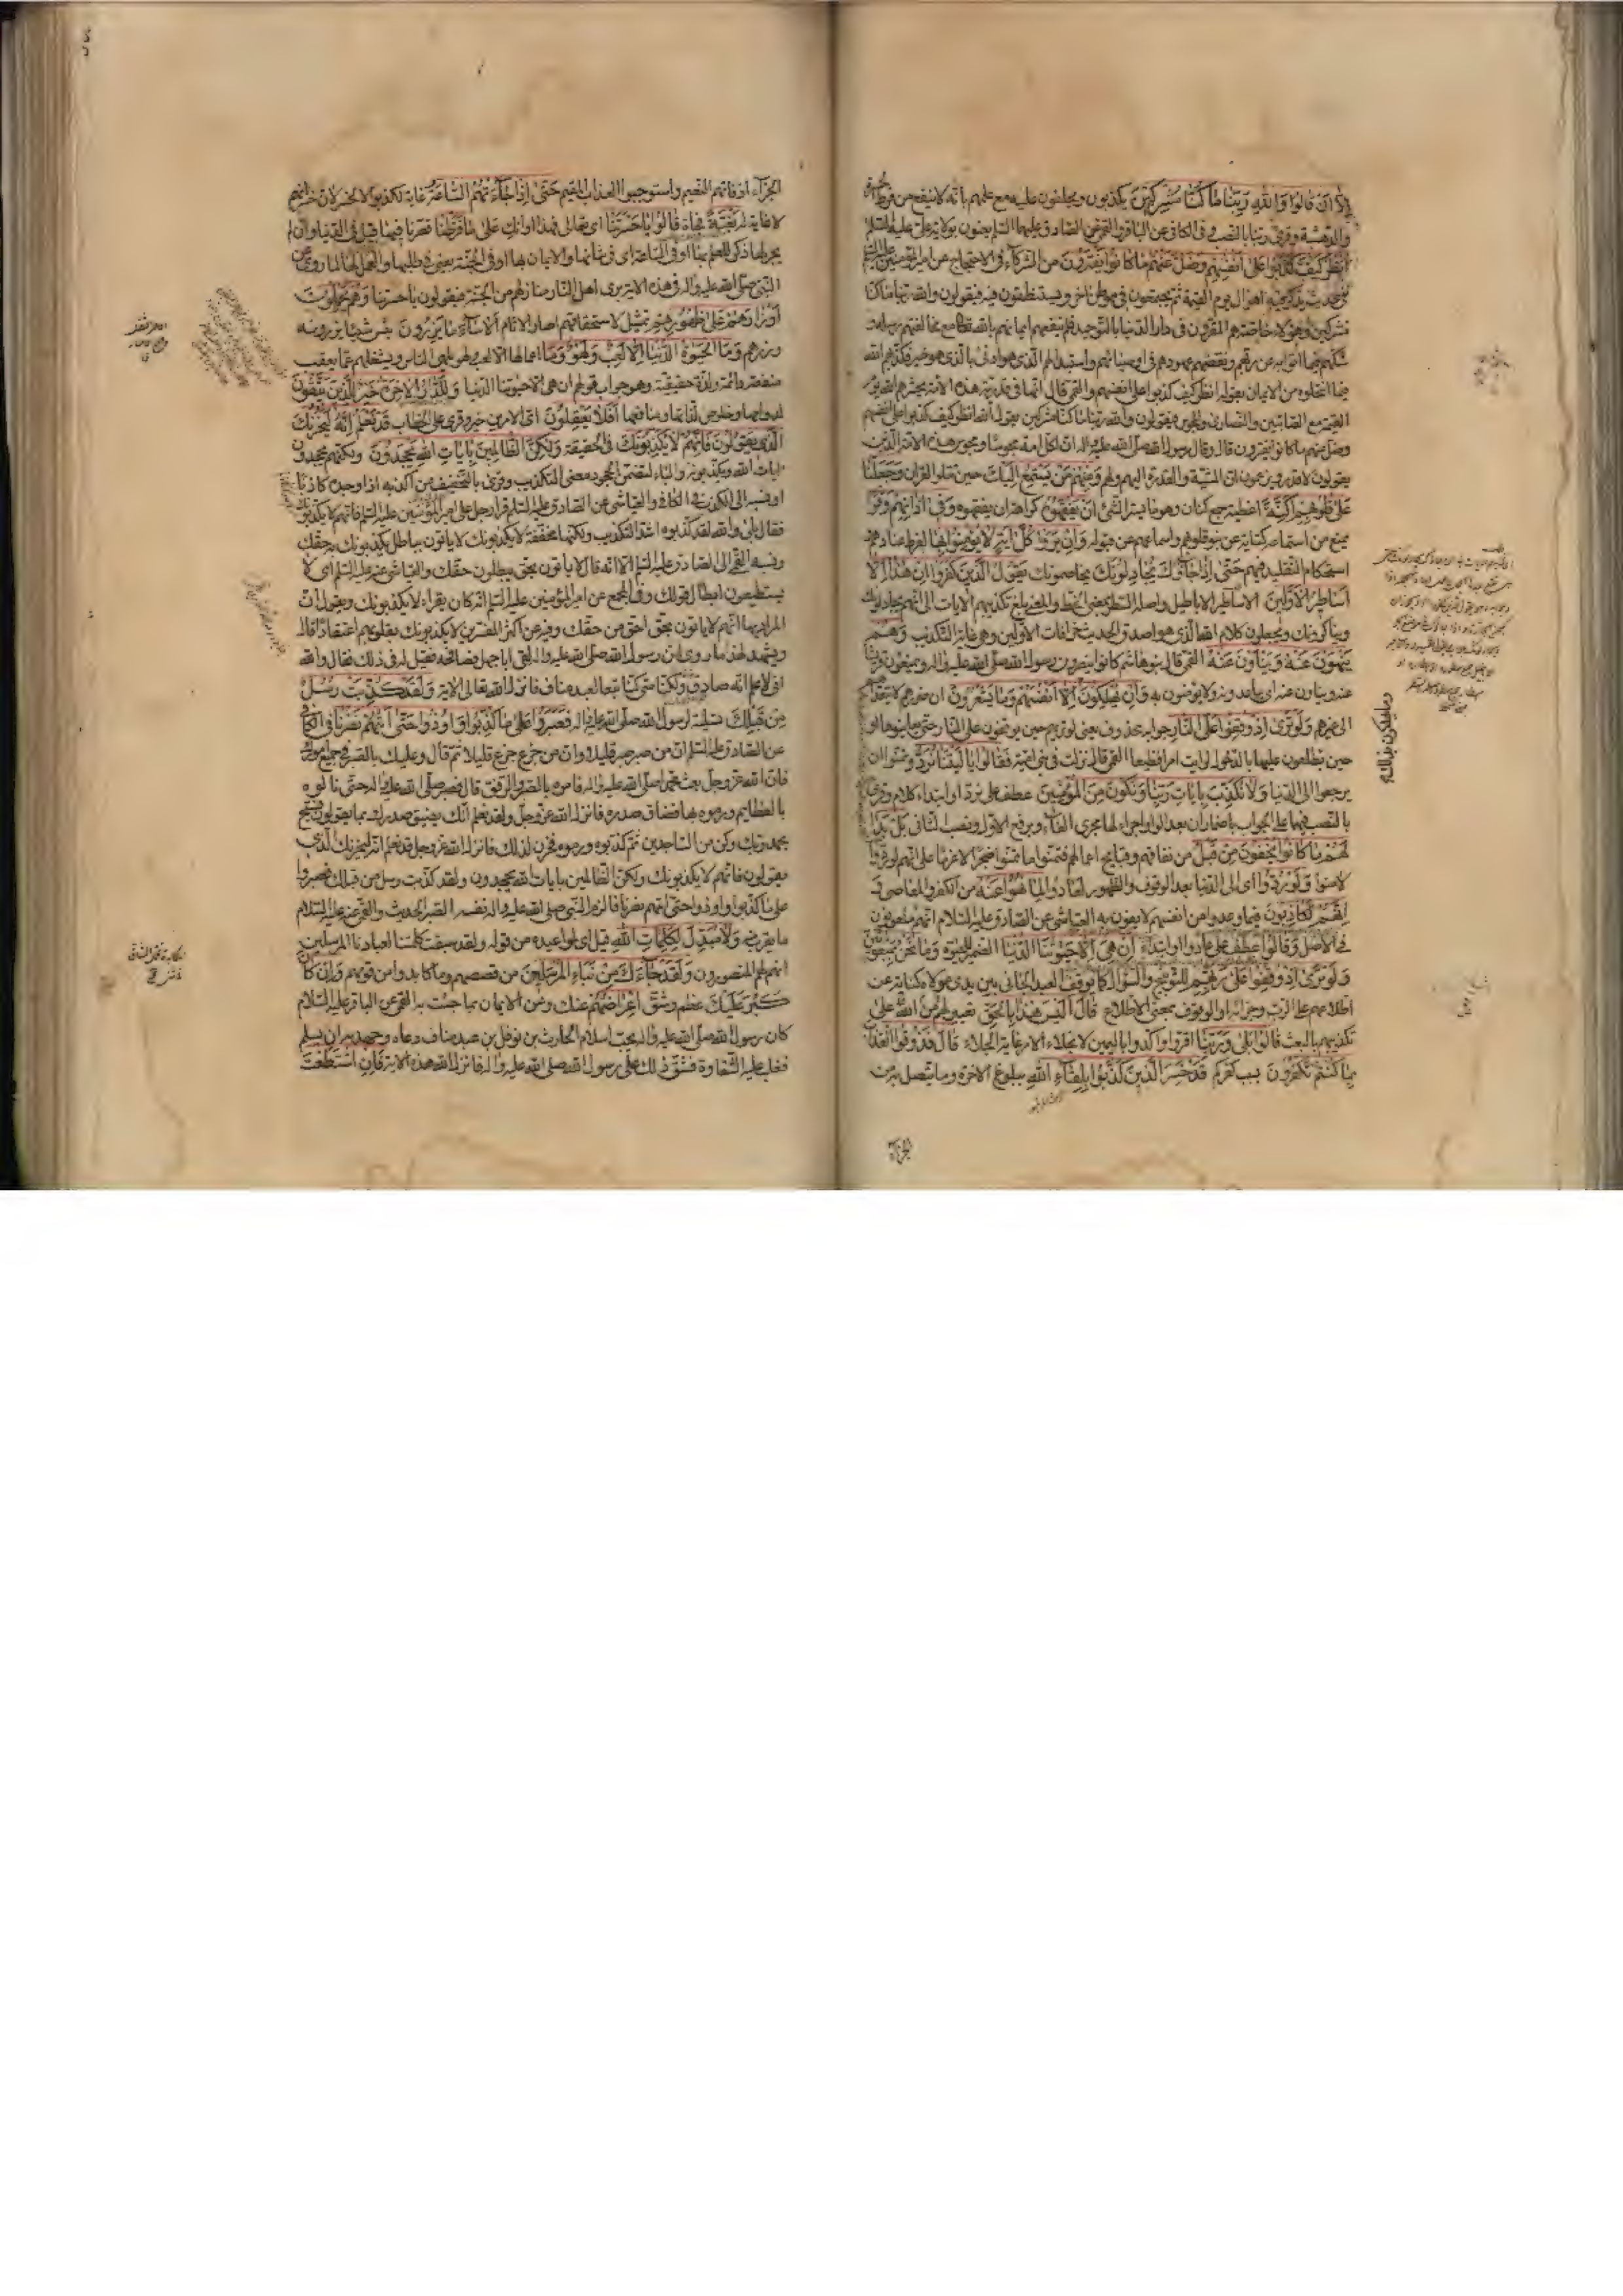 إلا أن قالوا والله ربنا ما كنا مشركين يكذبون ويحلفون عليه مع علمهم بأنه لا ينفع من فرط
والدهشة وقرئ ربنا بالنصب وفي الكافي عن الباقر والقمي عن الصادق عليهما السلم يعنون بولاية علي عليه السلم
أنظر كيف كذبوا على أنفسهم وضل عنهم ما كانوا يفترون من الشركاء في الاحتجاج عن امير المؤمنين عليه السلم
في حديث يذكر فيه اهوال يوم القيمة ثم يجتمعون في موطن اخر ويستنطقون فيه فيقولون والله ربنا ما كنا
مشركين وهؤلاء خاصة هم المقرون في دار الدنيا بالتوحيد فلم ينفعهم ايمانهم بالله مع مخالفتهم رسله و
شكهم فيما اتوا به عن ربهم ونقضهم عهودهم في اوصيائهم واستبدالهم الذي هو ادنى بالذي هو خير فكذبهم الله
فيما انتحلوه من الايمان بقوله انظر كيف كذبوا على انفسهم والقمي قال انها في قدرية هذه الامة يحشرهم الله يوم
القيمة مع الصابئين والنصارى والمجوس فيقولون والله ربنا ما كنا مشركين يقول الله انظر كيف كذبوا على انفسهم
وضل عنهم ما كانوا يفترون قال وقال رسول الله صلى الله عليه واله ان لكل امة مجوسا ومجوس هذه الامة الذين
يقولون لا قدر ويزعمون ان المشية والقدرة اليهم ولهم ومنهم من يستمع إليك حين تتلو القران وجعلنا
على قلوبهم أكنة اغطية جمع كنان وهو ما يستر الشئ أن يفقهوه كراهة ان يفقهوه وفي آذانهم وقرا
يمنع من استماعه كناية عن نبو قلوبهم واسماعهم عن قبوله وإن يروا كل آية لا يؤمنوا بها لفرط عنادهم و
استحكام التقليد فيهم حتى إذا جاؤك يجادلونك يخاصمونك يقول الذين كفروا إن هذا إلا
أساطير الأولين الاساطير الاباطيل واصله السطر بمعنى الخط والمعنى بلغ تكذيبهم الايات الى انهم يجادلونك
ويناكرونك ويجعلون كلام الله الذي هو اصدق الحديث خرافات الاولين وهو غاية التكذيب وهم
ينهون عنه وينأون عنه القمي قال بنو هاشم كانوا ينصرون رسول الله صلى الله عليه واله ويمنعون قريشا
عنه وينأون عنه اى يباعدونه ولا يؤمنون به وإن يهلكون إلا أنفسهم وما يشعرون ان ضررهم لا يتعداهم
الى غيرهم ولو ترى إذ وقفوا على النار جوابه محذوف يعنى لو تريهم حين يوقفون على النار حتى يعاينوها او
حين يطلعون عليها بالدخول لرايت امرا فظيعا القمي قال نزلت في بني امية فقالوا يا ليتنا نرد تمنوا ان
يرجعوا الى الدنيا ولا نكذب بآيات ربنا ونكون من المؤمنين عطف على نرد او ابتداء كلام وقرئ
بالنصب فيهما على الجواب باضمار ان بعد الواو اجراء لها مجرى الفاء وبرفع الاول ونصب الثاني بل بدا
لهم ما كانوا يخفون من قبل من نفاقهم وقبايح اعمالهم فتمنوا ما تمنوا ضجرا لا عزما على انهم لو ردوا
لامنوا ولو ردوا اى الى الدنيا بعد الوقوف والظهور لعادوا لما نهوا عنه من الكفر والمعاصي و
إنهم لكاذبون فيما وعدوا من انفسهم لا يفون به العياشي عن الصادق عليه السلام انهم ملعونون
في الاصل وقالوا عطف على عادوا او ابتداء إن هي إلا حيوتنا الدنيا الضمير للحيوة وما نحن بمبعوثين
ولو ترى إذ وقفوا على ربهم للتوبيخ والسؤال كما يوقف العبد الجاني بين يدي مولاه كناية عن
اطلاعهم على الرب وجزائه او الوقوف بمعنى الاطلاع قال أليس هذا بالحق تعيير لهم من الله على
تكذيبهم بالبعث قالوا بلى وربنا اقروا واكدوا باليمين لانجلاء الامر غاية الجلاء قال فذوقوا العذاب
بما كنتم تكفرون بسبب كفركم قد خسر الذين كذبوا بلقاء الله ببلوغ الاخرة وما يتصل بها من
الجزاء
الجزاء اذ فاتهم النعيم واستوجبوا العذاب المقيم حتى إذا جاءتهم الساعة غاية لكذبوا لا لخسر لان خسرانهم
لا غاية له بغتة فجأة قالوا يا حسرتنا اى تعالى فهذا اوانك على ما فرطنا قصرنا فيها قيل في الدنيا وان لم
يجر لها ذكر للعلم بها او في الساعة اى في شانها والايمان بها او في الجنة يعنى في طلبها والعمل لها لما روي عن
النبي صلى الله عليه واله في هذه الاية يرى اهل النار منازلهم من الجنة فيقولون يا حسرتنا وهم يحملون
أوزارهم على ظهورهم تمثيل لاستحقاقهم اصار الاثام ألا ساء ما يزرون بئس شيئا يزرونه
وزرهم وما الحيوة الدنيا إلا لعب ولهو وما اعمالها الا لعب ولهو يلهي الناس ويشغلهم عما يعقب
منفعة دائمة ولذة حقيقية وهو جواب قولهم ان هي الا حيوتنا الدنيا وللدار الآخرة خير للذين يتقون
لدوامها وخلوص لذاتها ومنافعها أفلا يعقلون اى الامرين خير وقرئ على الخطاب قد نعلم إنه ليحزنك
الذي يقولون فإنهم لا يكذبونك في الحقيقة ولكن الظالمين بآيات الله يجحدون ولكنهم يجحدون
بايات الله ويكذبونه والباء لتضمن الجحود معنى التكذيب وقرئ بالتخفيف من اكذبه اذا وجده كاذبا
او نسبه الى الكذب في الكافي والعياشي عن الصادق عليه السلم قرا رجل على امير المؤمنين عليه السلم فانهم لا يكذبونك
فقال بلى والله لقد كذبوه اشد التكذيب ولكنها مخففة لا يكذبونك لا ياتون بباطل يكذبون به حقك
ونسبه القمي الى الصادق عليه السلم الا انه قال لا ياتون بحق يبطلون حقك والعياشي عنه عليه السلم اى لا
يستطيعون ابطال قولك وفي المجمع عن امير المؤمنين عليه السلم انه كان يقراء لا يكذبونك ويقول ان
المراد بها انهم لا ياتون بحق احق من حقك وفيه عن اكثر المفسرين لا يكذبونك بقلوبهم اعتقادا قال
ويشهد لهذا ما روى ان رسول الله صلى الله عليه واله لقى ابا جهل فصافحه فقيل له في ذلك فقال والله
اني لاعلم انه صادق ولكنا متى كنا تبعا لعبد مناف فانزل الله تعالى الاية ولقد كذبت رسل
من قبلك تسلية لرسول الله صلى الله عليه واله فصبروا على ما كذبوا وأوذوا حتى أتيهم نصرنا في الكافي
عن الصادق عليه السلم ان من صبر صبر قليلا وان من جزع جزع قليلا ثم قال وعليك بالصبر في جميع امورك
فان الله عز وجل بعث محمدا صلى الله عليه واله فامره بالصبر والرفق قال فصبر صلى الله عليه واله حتى نالوه
بالعظايم ورموه بها فضاق صدره فانزل الله عز وجل ولقد نعلم انك يضيق صدرك بما يقولون فسبح
بحمد ربك وكن من الساجدين ثم كذبوه ورموه فحزن لذلك فانزل الله عز وجل قد نعلم انه ليحزنك الذي
يقولون فانهم لا يكذبونك ولكن الظالمين بايات الله يجحدون ولقد كذبت رسل من قبلك فصبروا
على ما كذبوا واوذوا حتى اتيهم نصرنا فالزم النبي صلى الله عليه واله نفسه الصبر الحديث والقمي عنه عليه السلام
ما يقرب منه ولا مبدل لكلمات الله قيل اى لمواعيده من قوله ولقد سبقت كلمتنا لعبادنا المرسلين
انهم لهم المنصورون ولقد جاءك من نباء المرسلين من قصصهم وما كابدوا من قومهم وإن كان
كبر عليك عظم وشق إعراضهم عنك وعن الايمان بما جئت به القمي عن الباقر عليه السلام
كان رسول الله صلى الله عليه واله يحب اسلام الحارث بن نوفل بن عبد مناف دعاه وجهد به ان يسلم
فغلب عليه الشقاوة فشق ذلك على رسول الله صلى الله عليه واله فانزل الله هذه الاية فإن استطعت